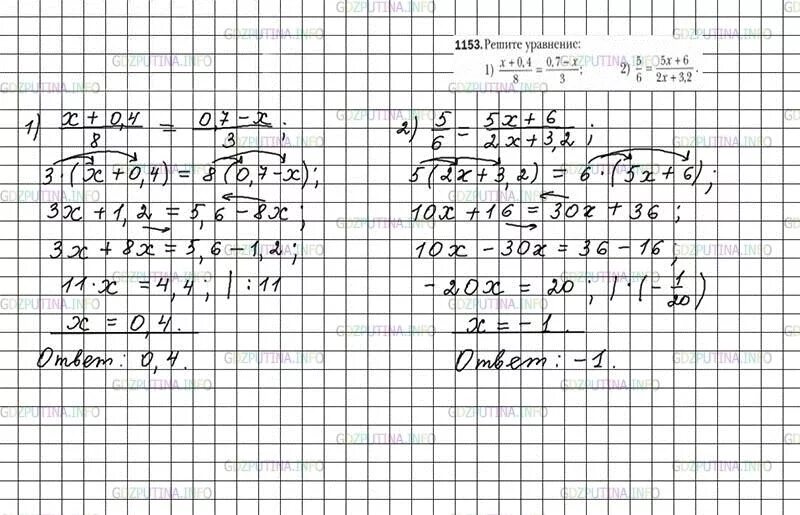 GDZPUTINA.INFO
1153. Решите уравнение:
1) (x + 0,4)/8 = (0,7 − x)/3; 2) 5/6 = (5x + 6)/(2x + 3,2).
1) (x + 0,4)/8 = (0,7 − x)/3;
3·(x + 0,4) = 8(0,7 − x);
3x + 1,2 = 5,6 − 8x;
3x + 8x = 5,6 − 1,2;
11·x = 4,4; | : 11
x = 0,4.
Ответ: 0,4.
2) 5/6 = (5x + 6)/(2x + 3,2);
5(2x + 3,2) = 6·(5x + 6);
10x + 16 = 30x + 36;
10x − 30x = 36 − 16;
−20x = 20; | · (−1/20)
x = −1.
Ответ: −1.